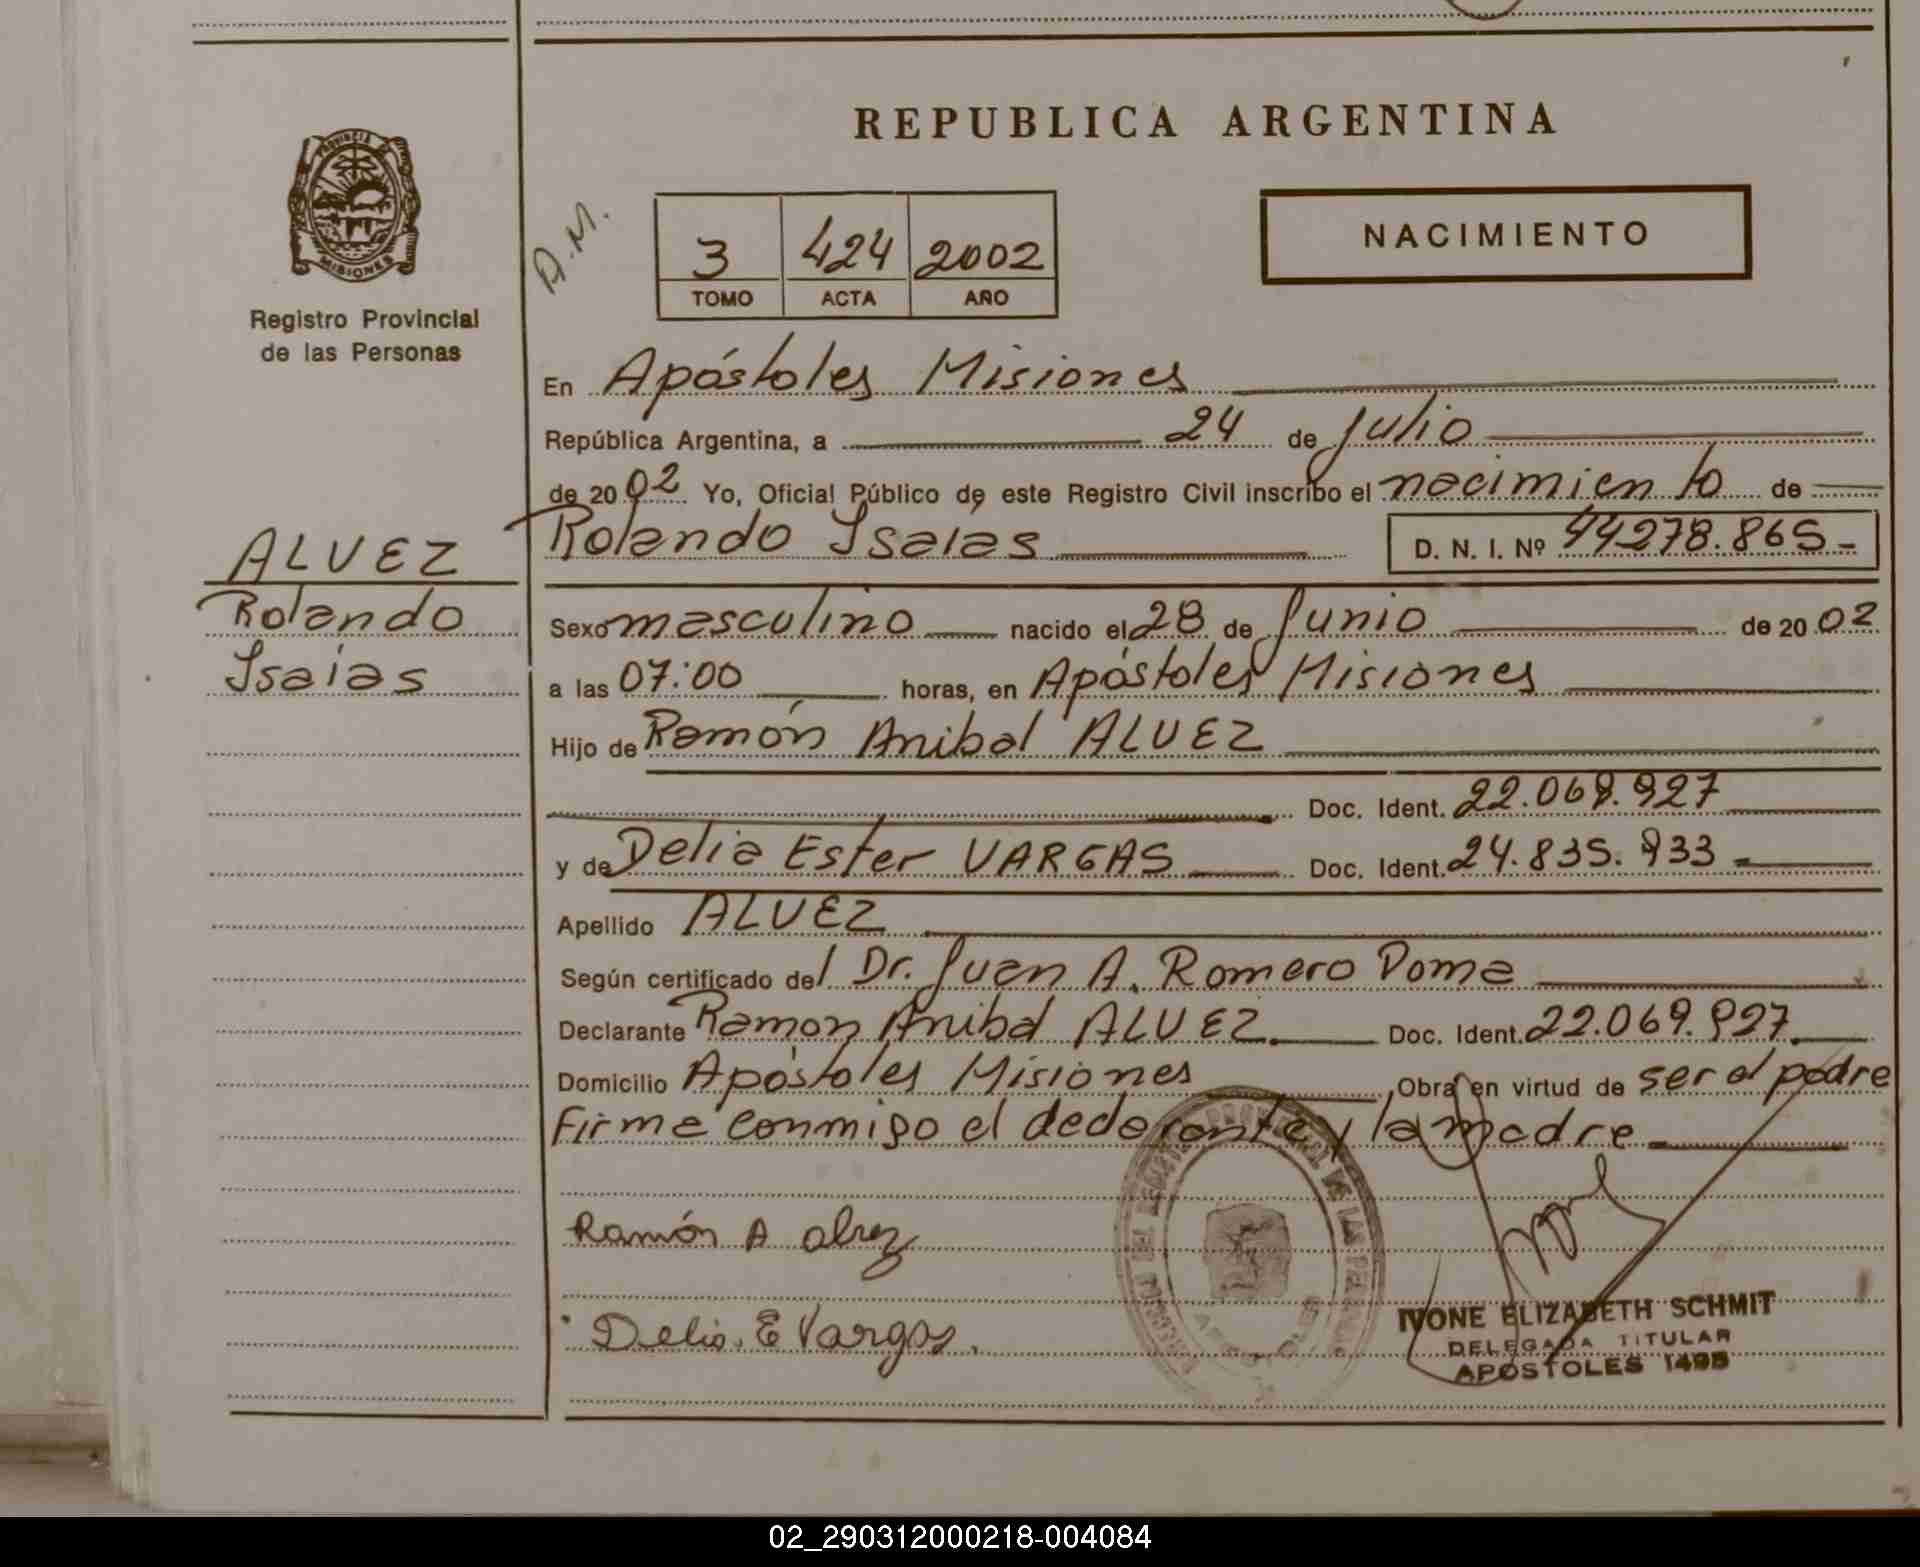 REPUBLICA ARGENTINA
PROVINCIA DE
MISIONES
Registro Provincial
de las Personas
A.M.
3 424 2002
TOMO ACTA AÑO
NACIMIENTO
En Apóstoles Misiones
República Argentina, a 24 de Julio
de 2002 Yo, Oficial Público de este Registro Civil inscribo el nacimiento de
Rolando Isaías D. N. I. Nº 44278.865-
ALVEZ
Rolando
Isaías
Sexo masculino nacido el 28 de Junio de 2002
a las 07:00 horas, en Apóstoles Misiones
Hijo de Ramón Anibal ALVEZ
Doc. Ident. 22.069.927
y de Delia Ester VARGAS Doc. Ident. 24.835.933
Apellido ALVEZ
Según certificado del Dr. Juan A. Romero Doma
Declarante Ramon Anibal ALVEZ Doc. Ident. 22.069.927
Domicilio Apóstoles Misiones Obra en virtud de ser el padre
Firma conmigo el declarante y la madre
Ramón A Alvez
Delia. E Vargas.
IVONE ELIZABETH SCHMIT
DELEGADA TITULAR
APOSTOLES 1495
02_290312000218-004084